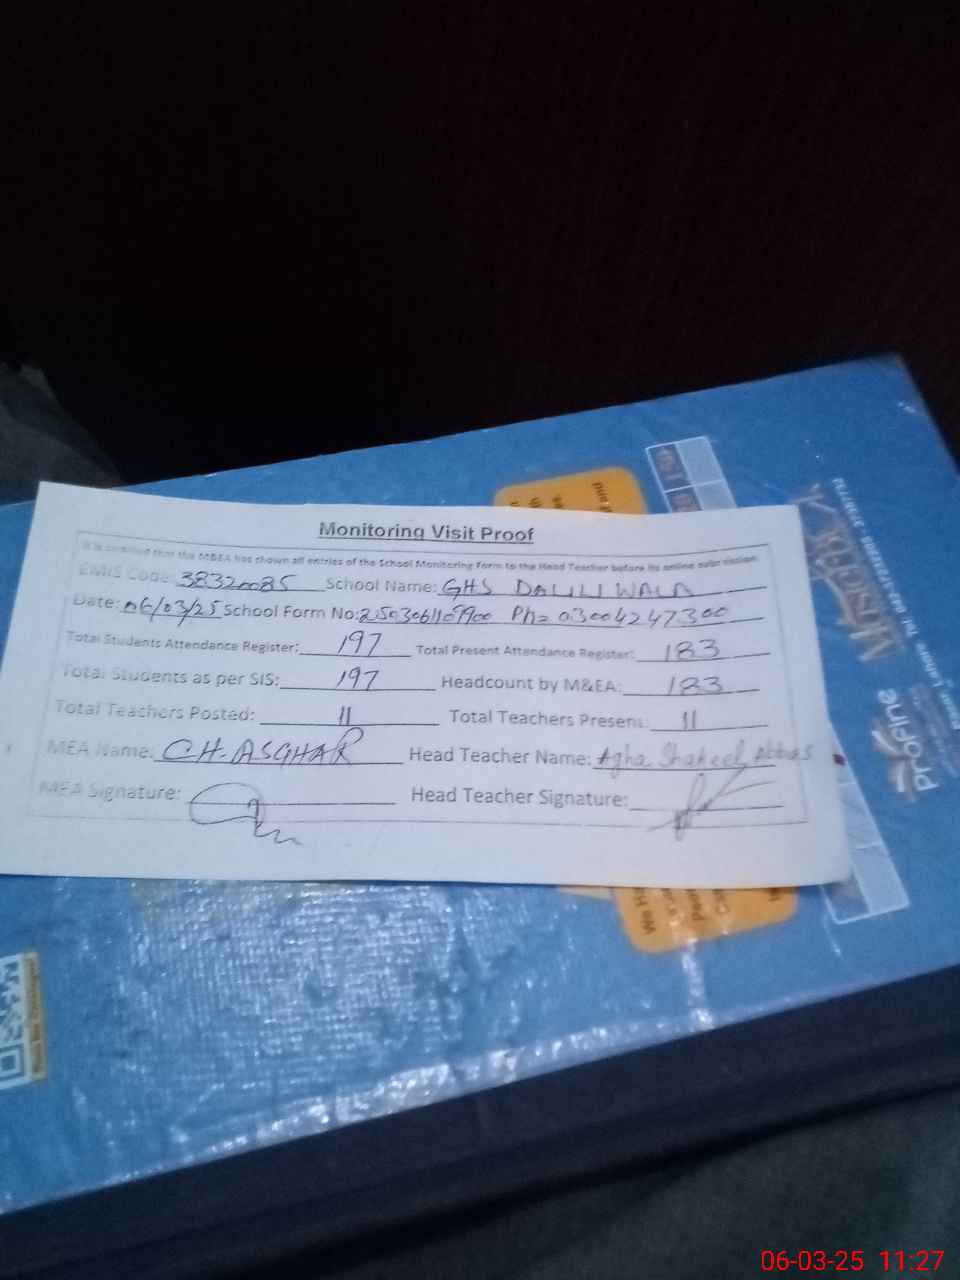 Monitoring Visit Proof
It is certified that the M&EA has shown all entries of the School Monitoring Form to the Head Teacher before its online submission.
EMIS Code: 38320085 School Name: GHS DAULI WALA
Date: 06/03/25 School Form No: Ph= 03004247300
Total Students Attendance Register: 197 Total Present Attendance Register: 183
Total Students as per SIS: 197 Headcount by M&EA: 183
Total Teachers Posted: 11 Total Teachers Present: 11
MEA Name: CH. ASGHAR Head Teacher Name: Agha Shakeel Abbas
MEA Signature: Head Teacher Signature:
ProFine
We Ha
06-03-25 11:27